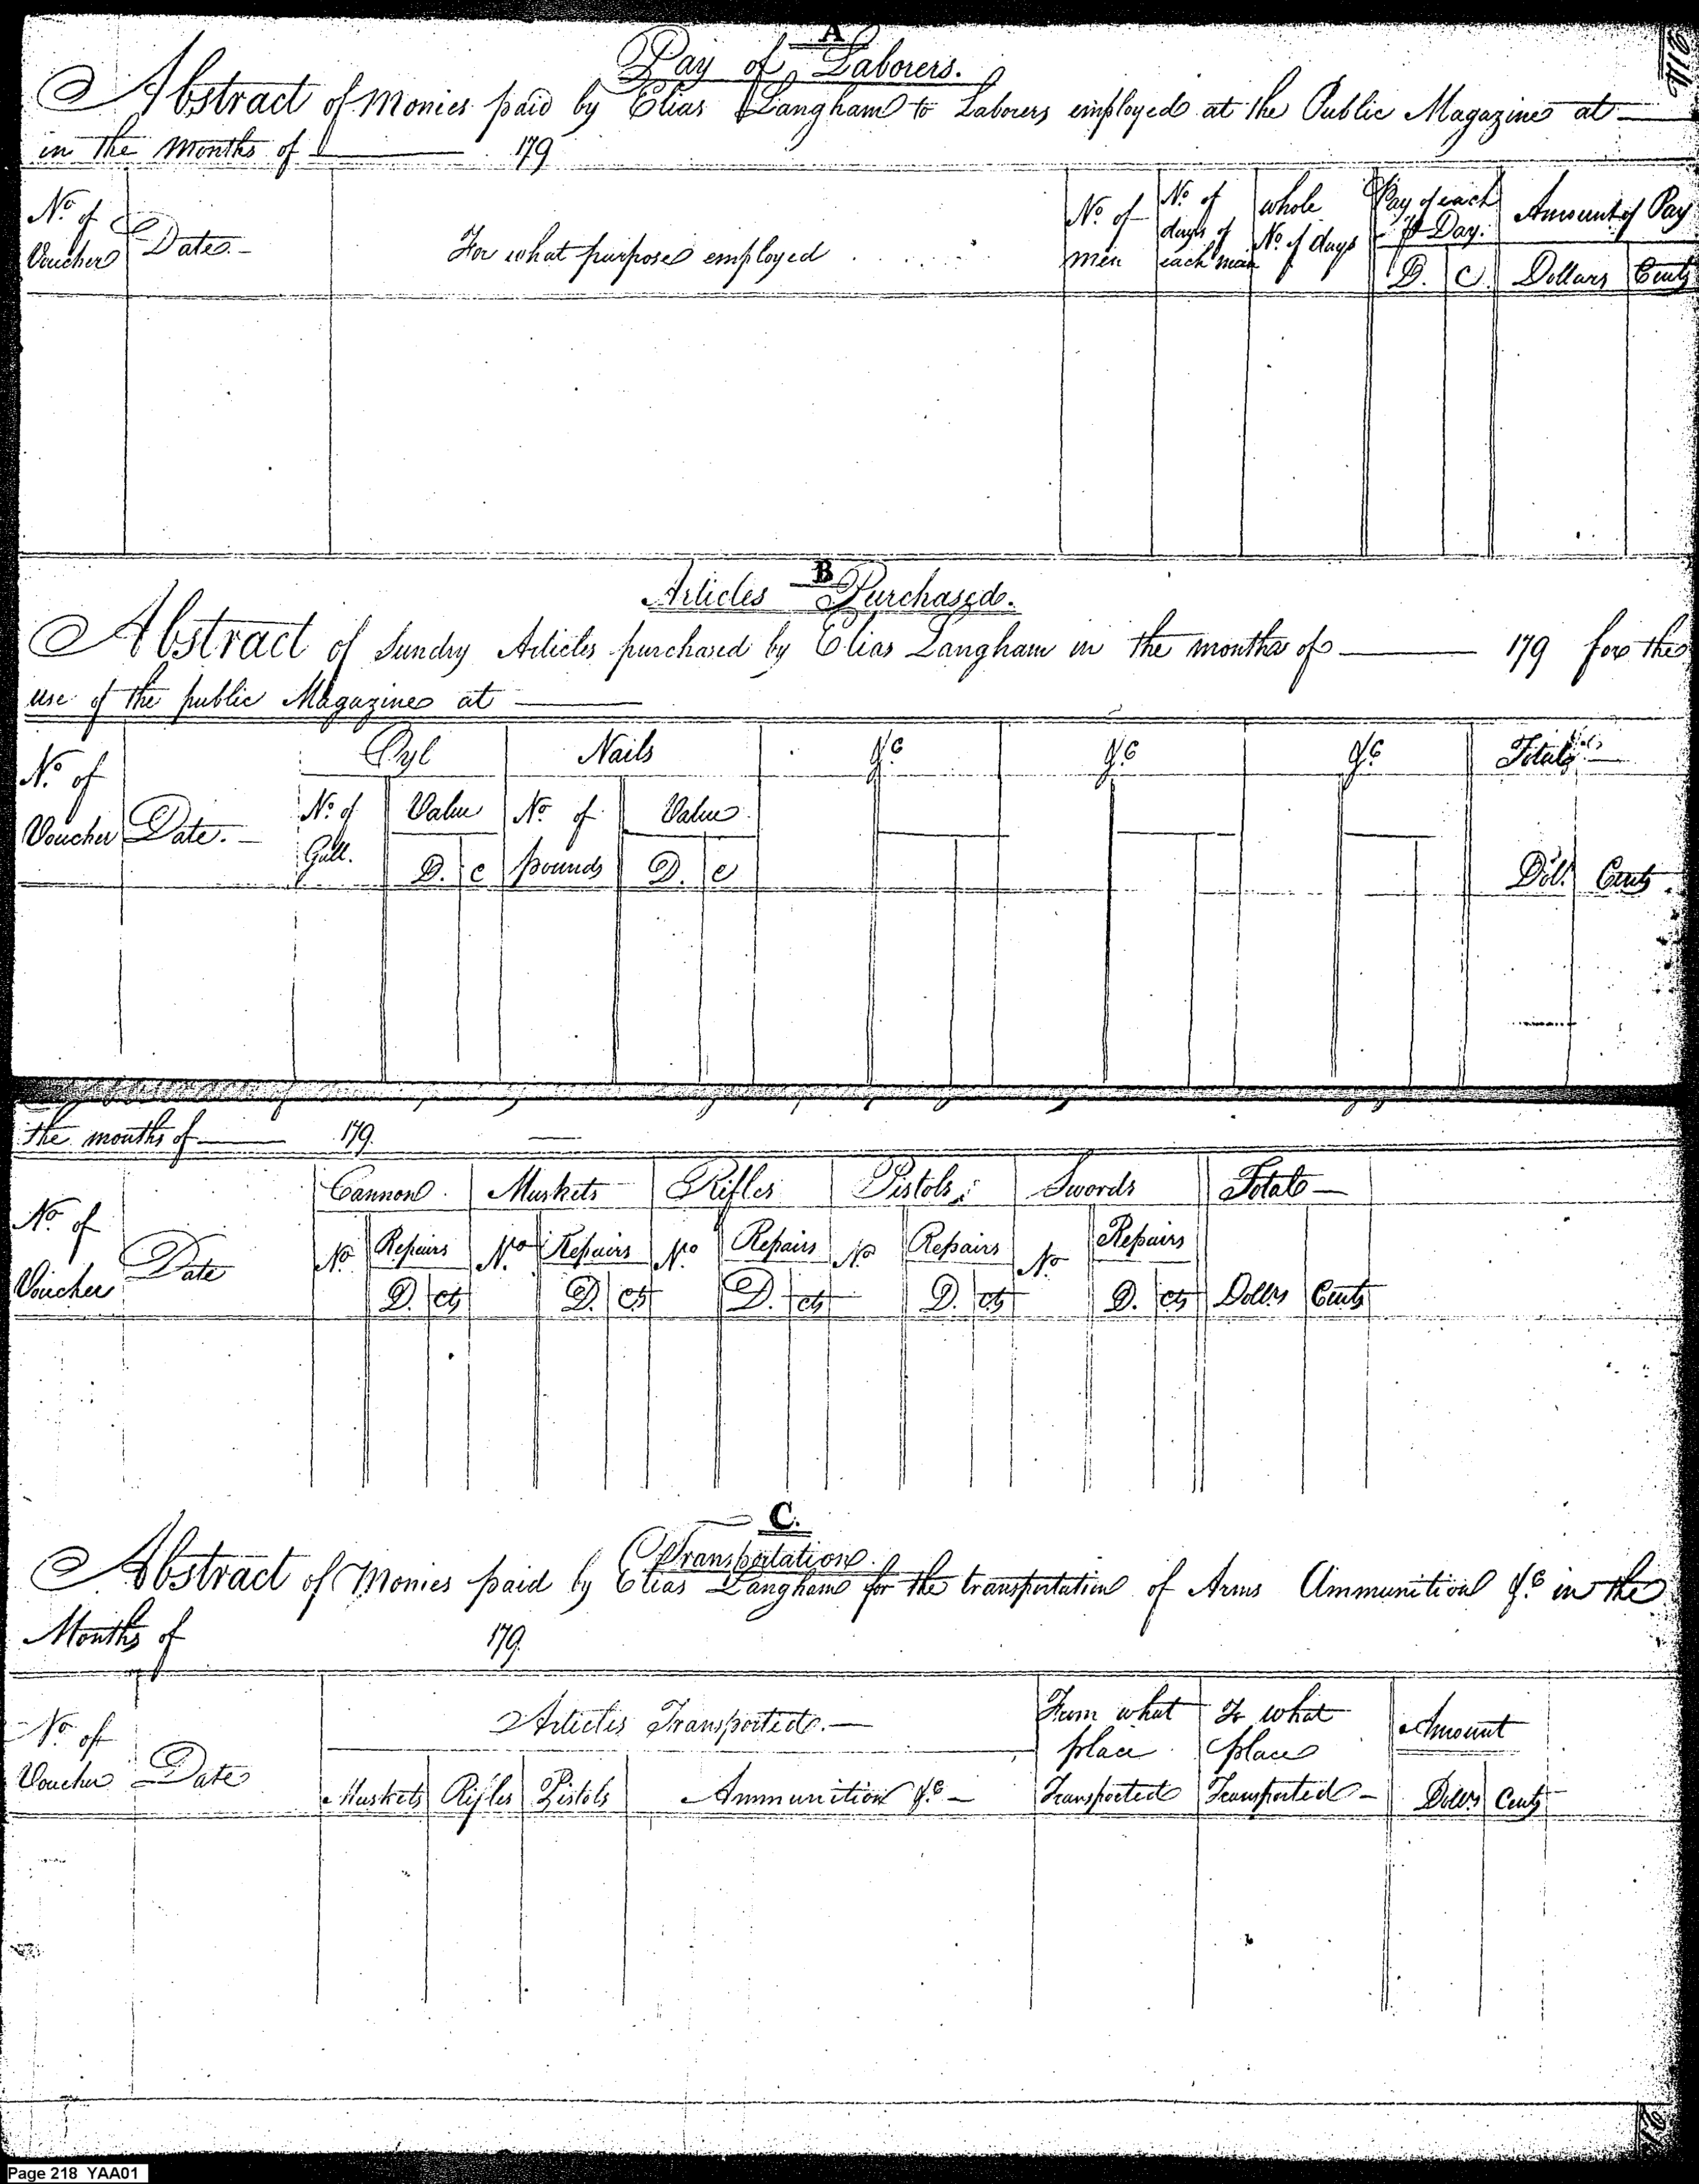 A
Pay of Laborers.
Abstract of Monies paid by Elias Langham to Laborers employed at the Public Magazine at
in the Months of 179
No. of Voucher Date. For what purpose employed No. of men No. of days of each man whole No. of days Pay of each ⅌ Day. D. C. Amount of Pay Dollars Cents
B
Articles Purchased.
Abstract of Sundry Articles purchased by Elias Langham in the months of 179 for the
use of the public Magazine at
No. of Voucher Date. Oyl No. of Gall. Value D. C Nails No. of pounds Value D. C &c &c &c Totals Doll. Cents
the months of 179
No. of Voucher Date Cannon No. Repairs D. Cts Muskets No. Repairs D. Cts Rifles No. Repairs D. Cts Pistols No. Repairs D. Cts Swords No. Repairs D. Cts Total Dollrs Cents
C.
Transportation.
Abstract of Monies paid by Elias Langham for the transportation of Arms Ammunition &c in the
Months of 179
No. of Voucher Date Articles Transported. Muskets Rifles Pistols Ammunition &c From what place Transported To what place Transported Amount Dollrs Cents
Page 218 YAA01